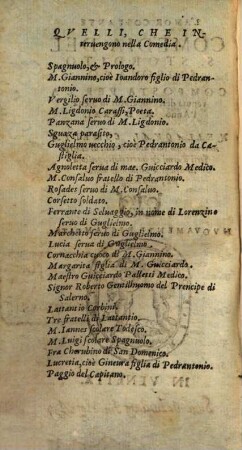 QVELLI, CHE IN-
teruengono nella Comedia.
Spagnuolo, & Prologo.
M. Giannino, cioè Ioandoro figlio di Pedran-
tonio.
Vergilio seruo di M. Giannino.
M. Ligdonio Caraffi, Poeta.
Panzana seruo di M. Ligdonio.
Sguaza parasito.
Guglielmo uecchio, cioè Pedrantonio da Ca-
stiglia.
Agnoletta serua di mae. Guicciardo Medico.
M. Consaluo fratello di Pedrantonio.
Rosades seruo di M. Consaluo.
Corsetto soldato.
Ferrante di Seluaggio, in nome di Lorenzino
seruo di Guglielmo.
Marchetto seruo di Guglielmo.
Lucia serua di Guglielmo.
Cornacchia cuoco di M. Giannino.
Margarita figlia di M. Guicciardo.
Maestro Guicciardo Palletti Medico.
Signor Roberto Gentilhuomo del Prencipe di
Salerno.
Lattantio Corbini.
Tre fratelli di Lattantio.
M. Iannes scolare Todesco.
M. Luigi scolare Spagnuolo.
Fra Cherubino di San Domenico.
Lucretia, cioè Gineura figlia di Pedrantonio.
Paggio del Capitano.